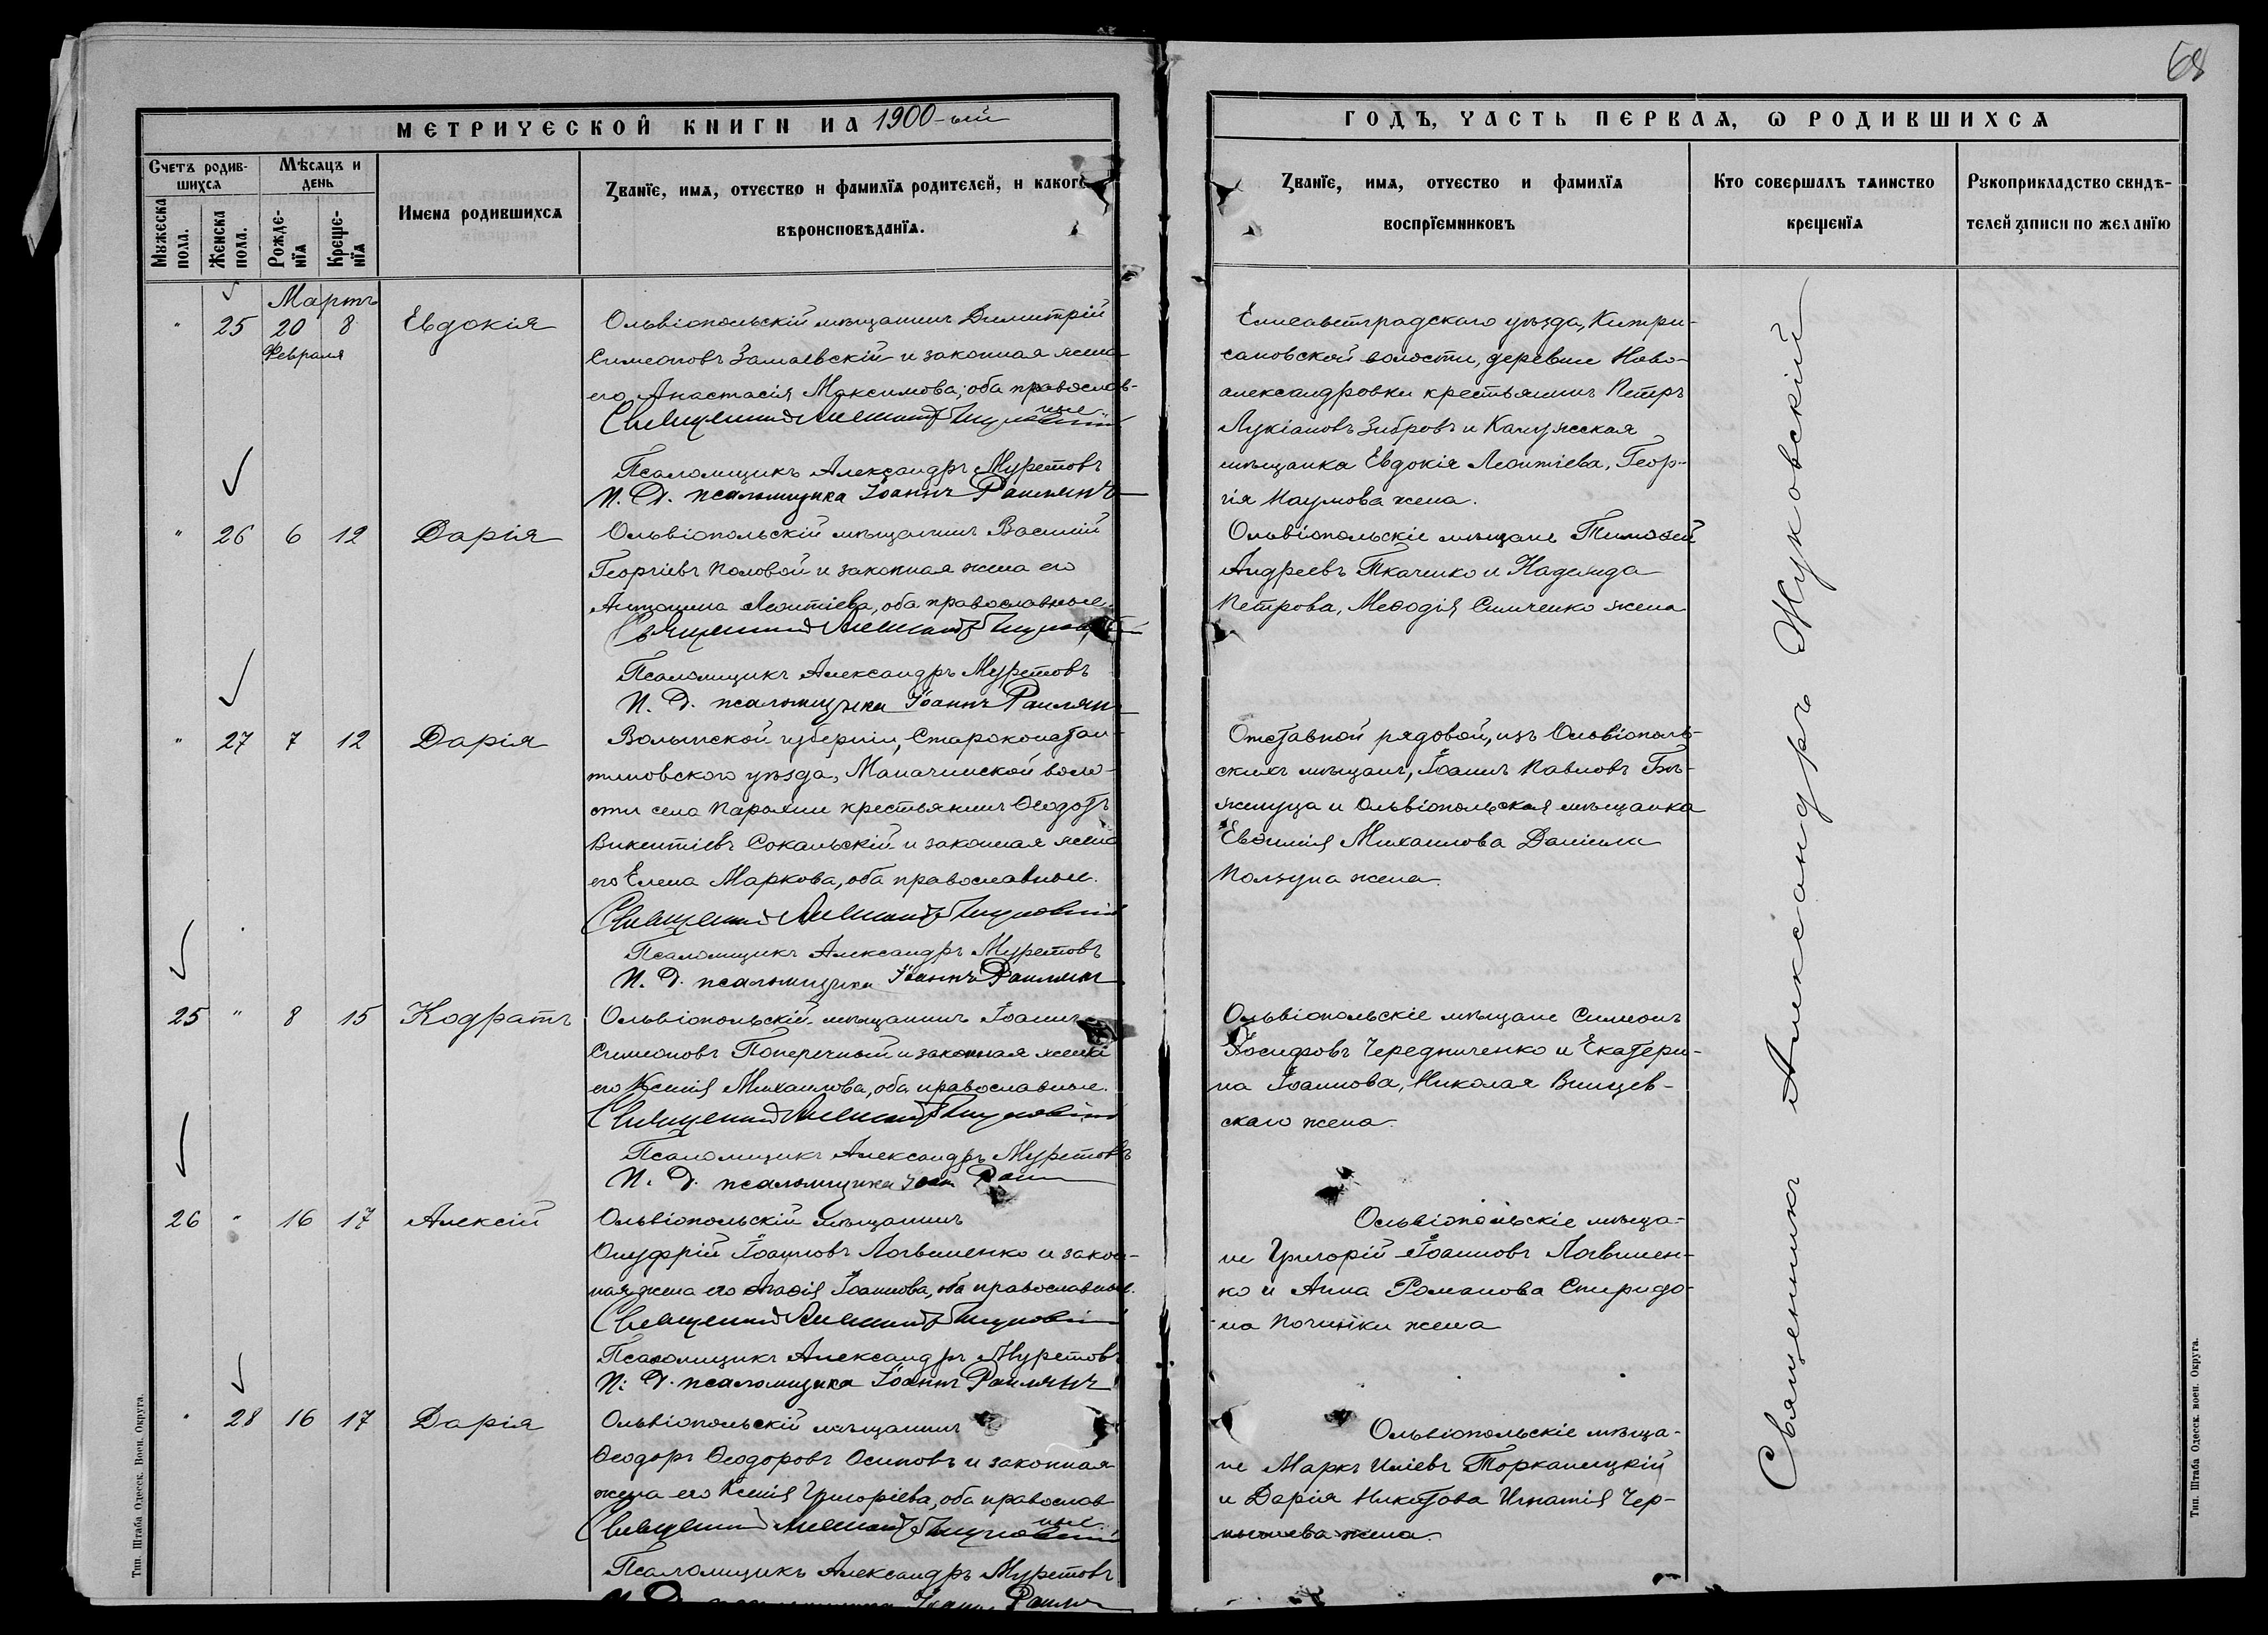 68
МЕТРИЧЕСКОЙ КНИГИ НА 1900-ый
ГОДЪ, ЧАСТЬ ПЕРВАЯ, Ѡ РОДИВШИХСЯ
Счетъ родив-
шихся
Мѣсяцъ и
день
Мужеска
пола.
Женска
пола.
Рожде-
нїя
Креще-
нїя
Имена родившихся
Званїе, имя, отчество и фамилїя родителей, и какого
вѣроисповѣданїя.
Званїе, имя, отчество и фамилїя
воспрїемниковъ
Кто совершалъ таинство
крещенїя
Рукоприкладство свидѣ-
телей записи по желанїю
Мартъ
" 25 20 8 Евдокія
Февраля
Ольвіопольскій мѣщанинъ Димитрій
Симеоновъ Замаевскій и законная жена
его Анастасія Максимова; оба православ-
ные.
Священникъ Александръ Жуковскій
Псаломщикъ Александръ Муретовъ
И. Д. псаломщика Іоаннъ Раилянъ
Елисаветградскаго уѣзда, Компри-
сановской волости, деревни Ново-
александровки крестьянинъ Петръ
Лукіановъ Зибровъ и Калужская
мѣщанка Евдокія Леонтіева, Геор-
гія Наумова жена.
" 26 6 12 Дарія
Ольвіопольскій мѣщанинъ Василій
Георгіевъ Половой и законная жена его
Антонина Леонтіева, оба православные.
Священникъ Александръ Жуковскій
Псаломщикъ Александръ Муретовъ
И. Д. псаломщика Іоаннъ Раилянъ
Ольвіопольскіе мѣщане Тимоѳей
Андреевъ Ткаченко и Надежда
Петрова, Меѳодія Симченко жена
" 27 7 12 Дарія
Волынской губерніи, Староконстан-
тиновского уѣзда, Маначинской воло-
сти села Паролли крестьянинъ Ѳеодотъ
Викентіевъ Сокальскій и законная жена
его Елена Маркова, оба православные.
Священникъ Александръ Жуковскій
Псаломщикъ Александръ Муретовъ
И. Д. псаломщика Іоаннъ Раилянъ
Отставной рядовой, изъ Ольвіополь-
скихъ мѣщанъ, Іоаннъ Павловъ Бѣ-
женуца и Ольвіопольская мѣщанка
Евѳимія Михаилова Даніила
Ползуна жена.
25 " 8 15 Кодратъ
Ольвіопольскій мѣщанинъ Іоаннъ
Симеоновъ Поперечный и законная жена
его Ксенія Михаилова, оба православные.
Священникъ Александръ Жуковскій
Псаломщикъ Александръ Муретовъ
И. Д. псаломщика Іоан Раил
Ольвіопольскіе мѣщане Симеонъ
Іосифовъ Чередниченко и Екатери-
на Іоаннова, Николая Винцев-
скаго жена.
26 " 16 17 Алексій
Ольвіопольскій мѣщанинъ
Онуфрій Іоанновъ Логвиненко и закон-
ная жена его Агаѳія Іоаннова, оба православные.
Священникъ Александръ Жуковскій
Псаломщикъ Александръ Муретовъ
И. Д. псаломщика Іоаннъ Раилянъ
Ольвіопольскіе мѣща-
не Григорій Іоанновъ Логвинен-
ко и Анна Романова Спиридо-
на Починки жена
" 28 16 17 Дарія
Ольвіопольскій мѣщанинъ
Ѳеодоръ Ѳеодоровъ Осиповъ и законная
жена его Ксенія Григоріева, оба православ
ные
Священникъ Александръ Жуковскій
Псаломщикъ Александръ Муретовъ
И. Д. псаломщика Іоаннъ Раилян
Ольвіопольскіе мѣща-
не Маркъ Иліевъ Торканицкій
и Дарія Никитова Игнатія Чер-
нышева жена.
Священникъ Александръ Жуковскій
Тип. Штаба Одесск. Воен. Округа.
Тип. Штаба Одесск. воен. Округа.